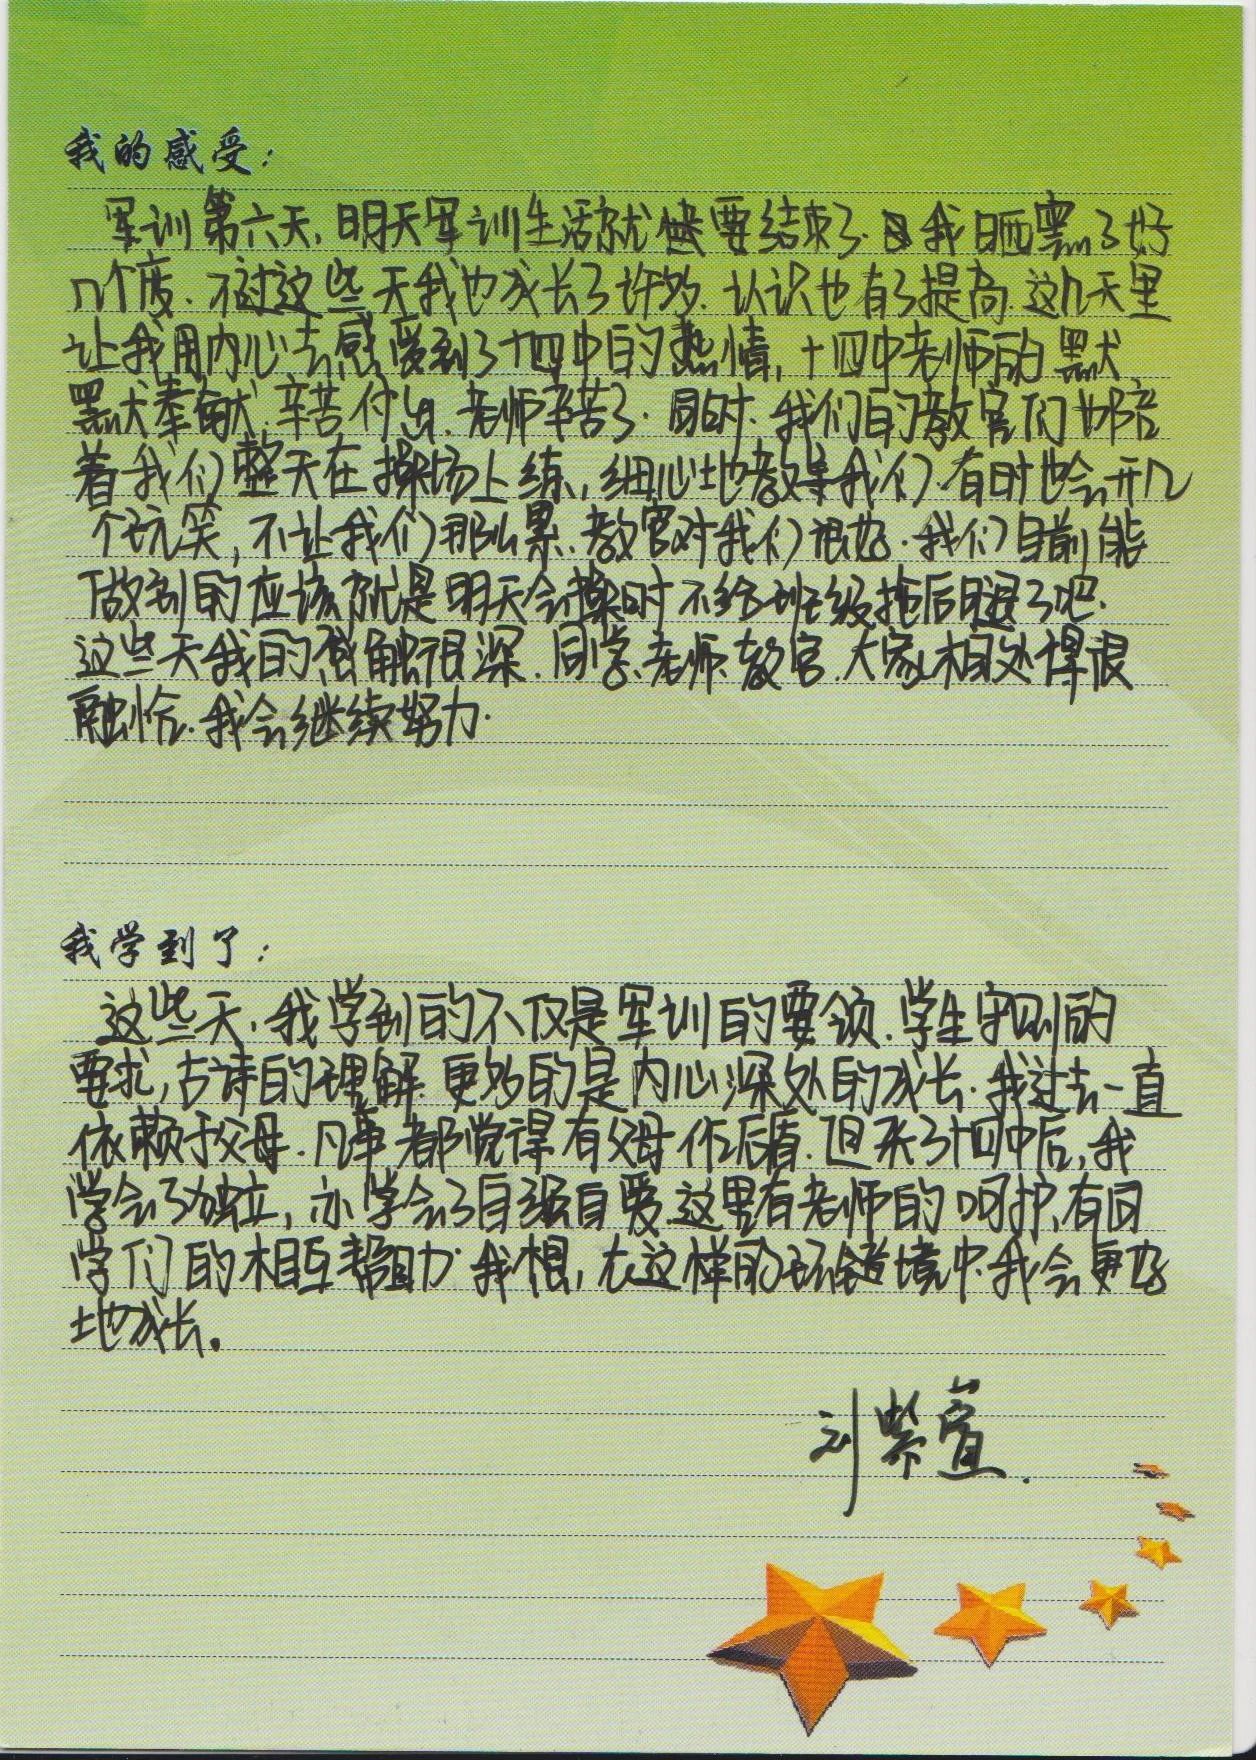 我的感受：
军训第六天，明天军训生活就快要结束了。我晒黑了好
几个度．不过这些天我也成长了许多．认识也有了提高．这几天里
让我用内心去感受到了十四中的热情，十四中老师的默
默奉献．辛苦付出．老师辛苦了．同时．我们的教官们也陪
着我们整天在操场上练，细心地教导我们．有时也会开几
个玩笑，不让我们那么累．教官对我们很好．我们目前能
做到的应该就是明天会操时不给班级拖后腿了吧．
这些天我的感触很深．同学、老师、教官．大家相处得很
融恰．我会继续努力．
我学到了：
这些天，我学到的不仅是军训的要领．学生守则的
要求，古诗的理解．更多的是内心深处的成长．我过去一直
依赖于父母．凡事都觉得有父母作后盾．但来了十四中后，我
学会了独立，亦学会了自强自爱．这里有老师的呵护，有同
学们的相互帮助．我想，在这样的环境中．我会更好
地成长。
刘紫萱．